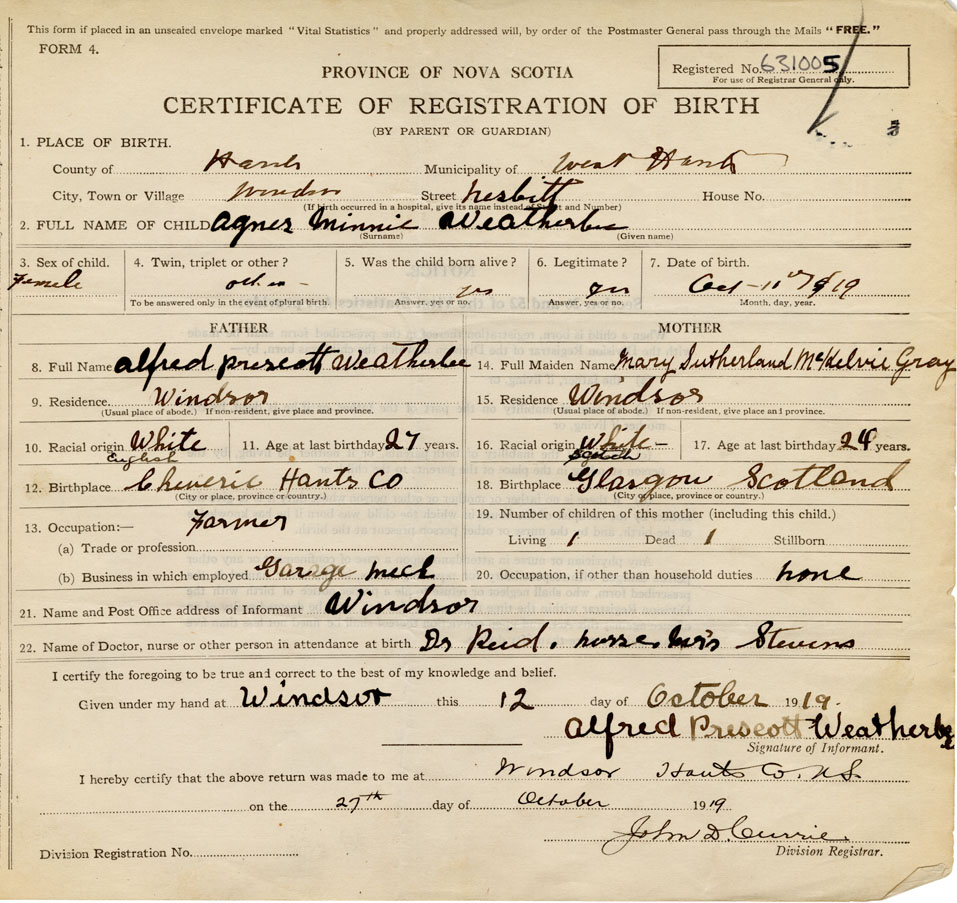 This form if placed in an unsealed envelope marked "Vital Statistics" and properly addressed will, by order of the Postmaster General pass through the Mails "FREE."
FORM 4.
Registered No. 631005
For use of Registrar General only.
PROVINCE OF NOVA SCOTIA
CERTIFICATE OF REGISTRATION OF BIRTH
(BY PARENT OR GUARDIAN)
1. PLACE OF BIRTH.
County of Hants Municipality of West Hants
City, Town or Village Windsor Street Nesbitt House No.
(If birth occurred in a hospital, give its name instead of Street and Number)
2. FULL NAME OF CHILD Agnes Minnie Weatherbee
(Surname) (Given name)
3. Sex of child. 4. Twin, triplet or other? 5. Was the child born alive? 6. Legitimate? 7. Date of birth.
Female yes yes Oct - 11th 1919
To be answered only in the event of plural birth. Answer, yes or no. Answer, yes or no. Month, day, year.
FATHER MOTHER
8. Full Name Alfred Prescott Weatherbee 14. Full Maiden Name Mary Sutherland McKelvie Gray
9. Residence Windsor 15. Residence Windsor
(Usual place of abode.) If non-resident, give place and province. (Usual place of abode.) If non-resident, give place and province.
10. Racial origin White 11. Age at last birthday 27 years. 16. Racial origin White - 17. Age at last birthday 24 years.
English
12. Birthplace Cheverie Hants Co 18. Birthplace Glasgow Scotland
(City or place, province or country.) (City or place, province or country.)
13. Occupation:— Farmer 19. Number of children of this mother (including this child.)
(a) Trade or profession Living 1 Dead 1 Stillborn
(b) Business in which employed Garage mech 20. Occupation, if other than household duties none
21. Name and Post Office address of Informant Windsor
22. Name of Doctor, nurse or other person in attendance at birth Dr Reid. nurse. Mrs Stevens
I certify the foregoing to be true and correct to the best of my knowledge and belief.
Given under my hand at Windsor this 12 day of October 1919.
Alfred Prescott Weatherbee
Signature of Informant.
I hereby certify that the above return was made to me at Windsor Hants Co. N.S.
on the 27th day of October 1919
John D Currie.
Division Registrar.
Division Registration No.